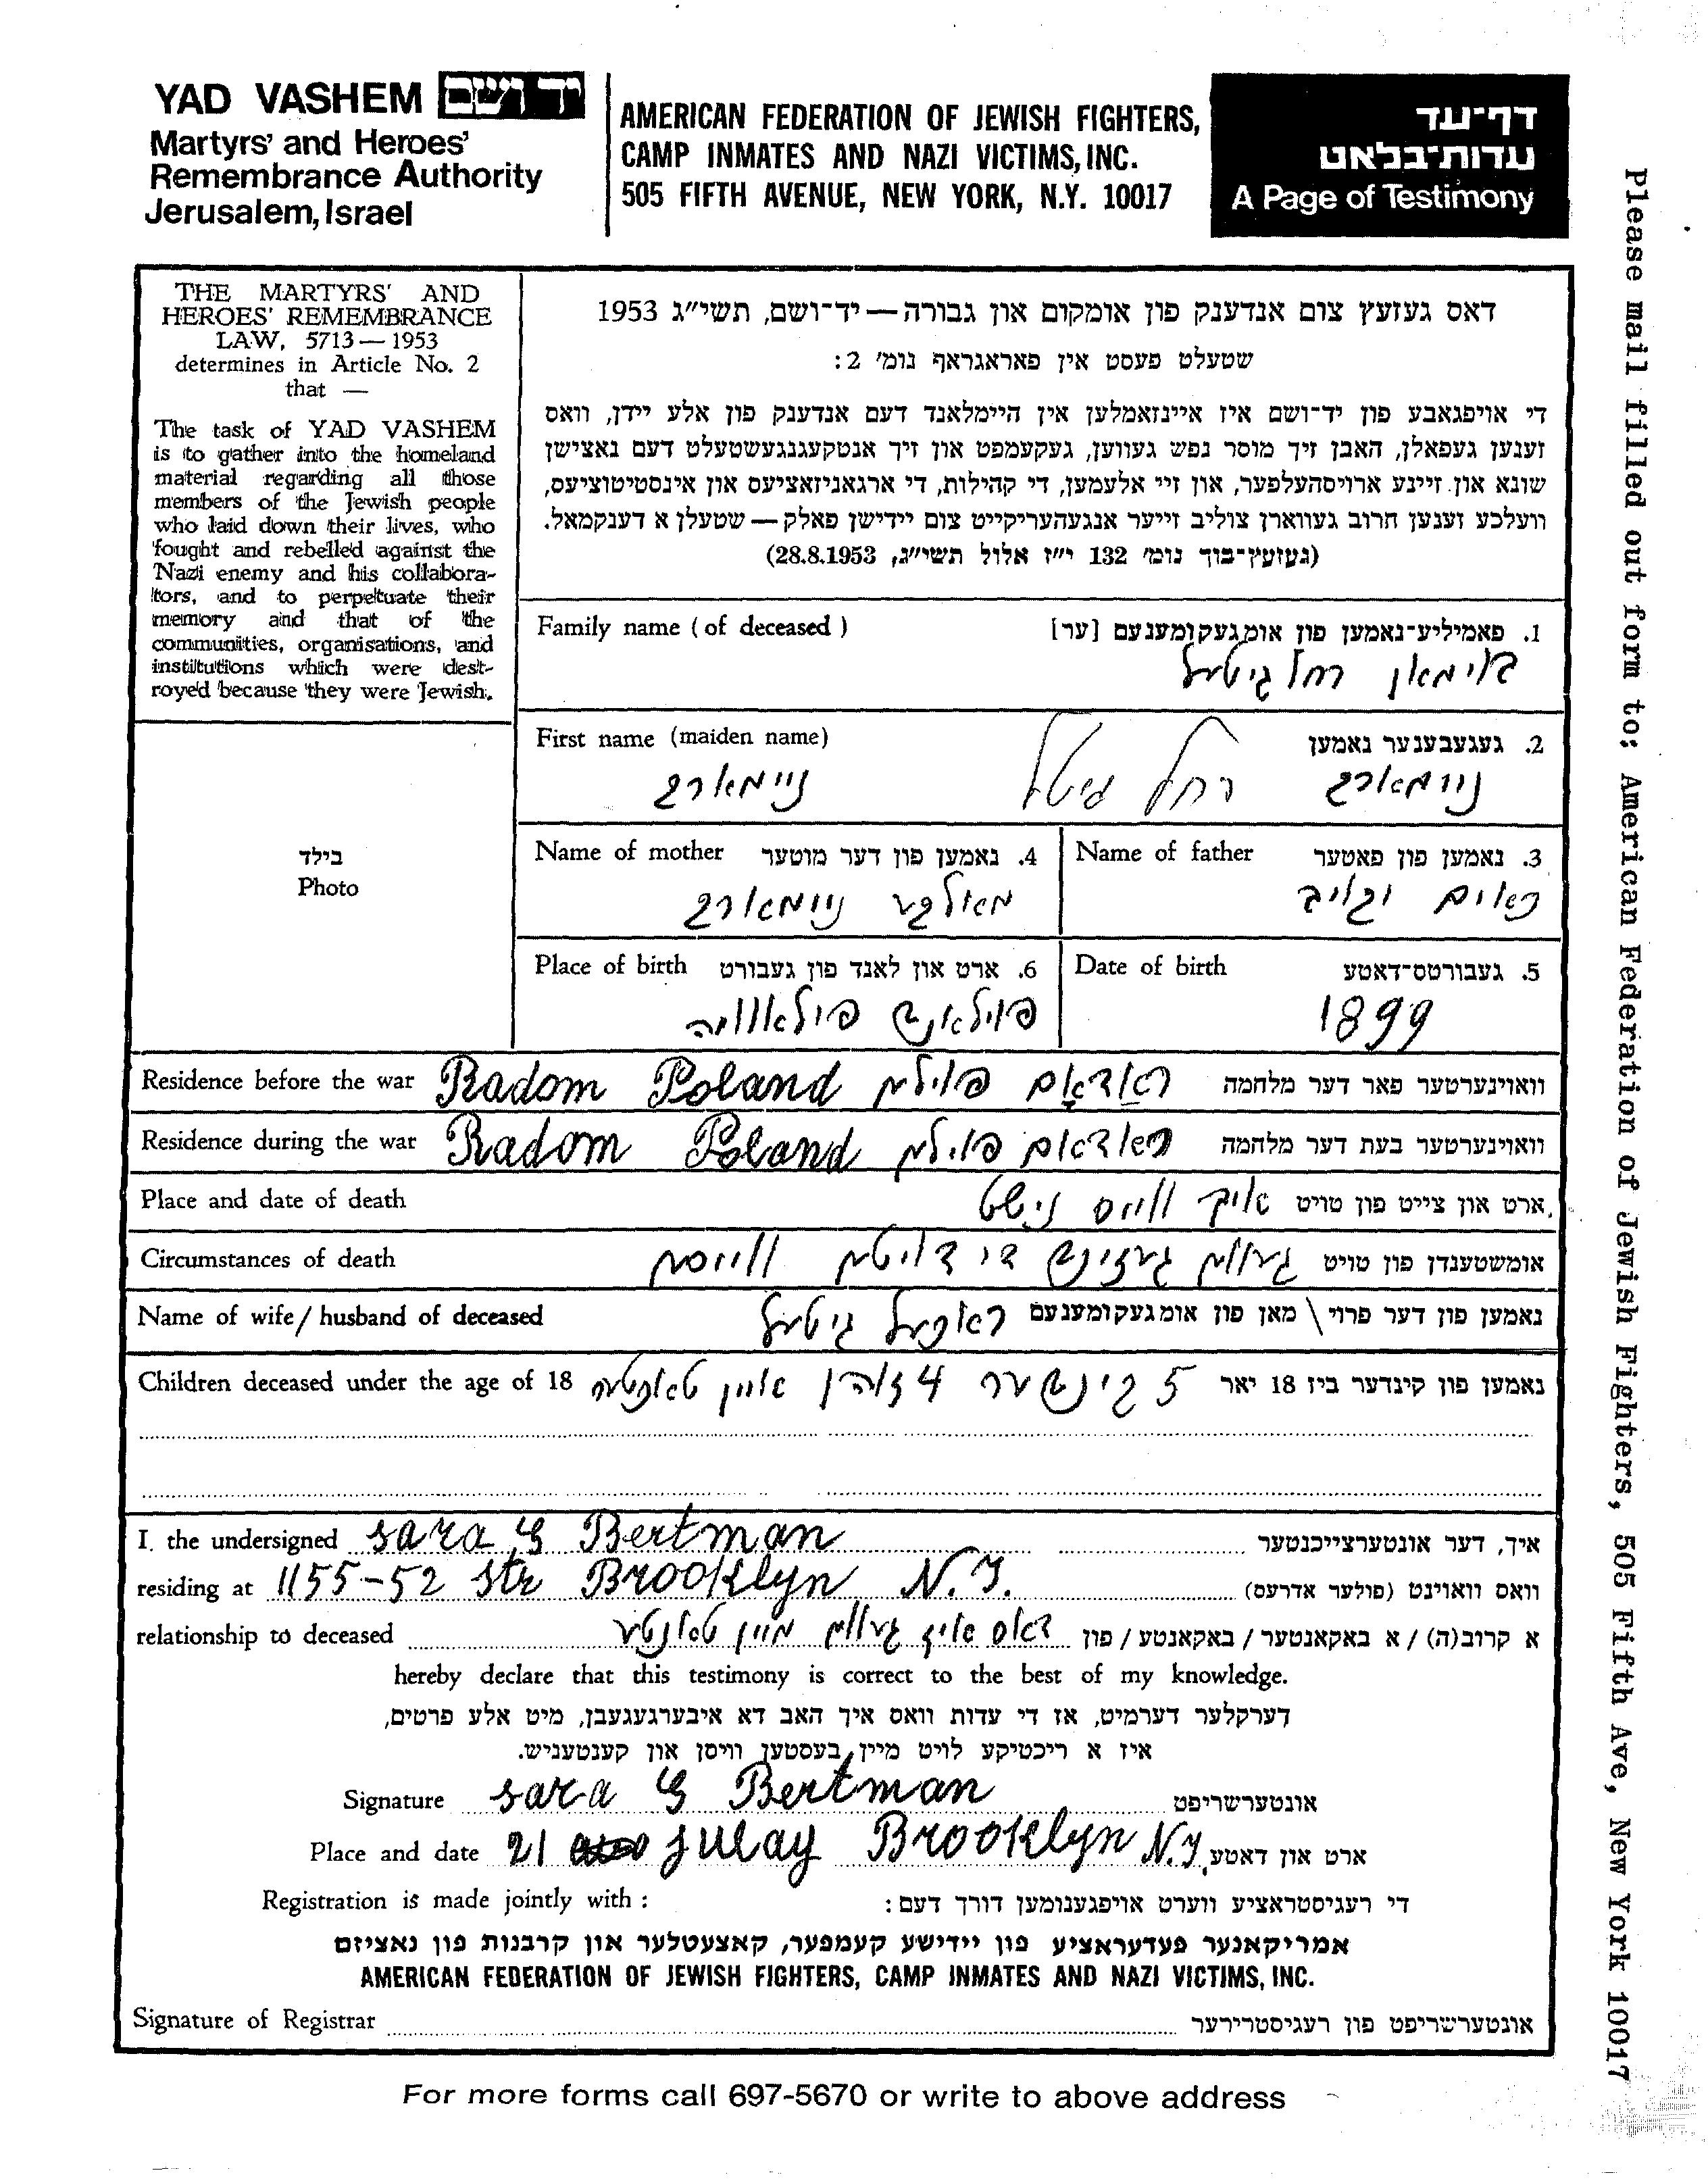 YAD VASHEM יד ושם
Martyrs' and Heroes'
Remembrance Authority
Jerusalem, Israel
AMERICAN FEDERATION OF JEWISH FIGHTERS,
CAMP INMATES AND NAZI VICTIMS, INC.
505 FIFTH AVENUE, NEW YORK, N.Y. 10017
דף־עד
עדות־בלאט
A Page of Testimony
THE MARTYRS' AND
HEROES' REMEMBRANCE
LAW, 5713 — 1953
determines in Article No. 2
that —
The task of YAD VASHEM
is to gather into the homeland
material regarding all those
members of the Jewish people
who laid down their lives, who
fought and rebelled against the
Nazi enemy and his collabora-
tors, and to perpetuate their
memory and that of the
communities, organisations, and
institutions which were dest-
royed because they were Jewish.
דאס געזעץ צום אנדענק פון אומקום און גבורה — יד־ושם, תשי"ג 1953
שטעלט פעסט אין פאראגראף נומ' 2:
די אויפגאבע פון יד־ושם איז איינזאמלען אין היימלאנד דעם אנדענק פון אלע יידן, וואס
זענען געפאלן, האבן זיך מוסר נפש געווען, געקעמפט און זיך אנטקעגנגעשטעלט דעם נאצישן
שונא און זיינע ארויסהעלפער, און זיי אלעמען, די קהילות, די ארגאניזאציעס און אינסטיטוציעס,
וועלכע זענען חרוב געווארן צוליב זייער אנגעהעריקייט צום יידישן פאלק — שטעלן א דענקמאל.
(געזעץ־בוך נומ' 132 י"ז אלול תשי"ג, 28.8.1953)
Family name (of deceased) 1. פאמיליע־נאמען פון אומגעקומענעם [ער]
רחל גיטל
First name (maiden name) 2. געגעבענער נאמען
ניימארק רחל גיטל ניימארק
Name of mother 4. נאמען פון דער מוטער Name of father 3. נאמען פון פאטער
מאלקע ניימארק
Place of birth 6. ארט און לאנד פון געבורט Date of birth 5. געבורטס־דאטע
פוילאנד 1899
Residence before the war Radom Poland ראַדאָם פוילן וואוינערטער פאר דער מלחמה
Residence during the war Radom Poland ראדאם פוילן וואוינערטער בעת דער מלחמה
Place and date of death איך ווייס נישט ארט און צייט פון טויט
Circumstances of death אומשטענדן פון טויט
Name of wife / husband of deceased ראכעל גיטעל נאמען פון דער פרוי \ מאן פון אומגעקומענעם
Children deceased under the age of 18 5 קינדער 4 זוהן איין טאכטער נאמען פון קינדער ביז 18 יאר
I, the undersigned Sara G Bertman איך, דער אונטערצייכנטער
residing at 1155-52 Str Brooklyn N.Y. וואס וואוינט (פולער אדרעס)
relationship to deceased דאס איז געווען מיין טאנטע א קרוב(ה) / א באקאנטער / באקאנטע / פון
hereby declare that this testimony is correct to the best of my knowledge.
דערקלער דערמיט, אז די עדות וואס איך האב דא איבערגעגעבן, מיט אלע פרטים,
איז א ריכטיקע לויט מיין בעסטען וויסן און קענטעניש.
Signature Sara G Bertman אונטערשריפט
Place and date 21 Julay Brooklyn N.Y ארט און דאטע
Registration is made jointly with : די רעגיסטראציע ווערט אויפגענומען דורך דעם :
אמריקאנער פעדעראציע פון יידישע קעמפער, קאצעטלער און קרבנות פון נאציזם
AMERICAN FEDERATION OF JEWISH FIGHTERS, CAMP INMATES AND NAZI VICTIMS, INC.
Signature of Registrar אונטערשריפט פון רעגיסטרירער
בילד
Photo
For more forms call 697-5670 or write to above address
Please mail filled out form to: American Federation of Jewish Fighters, 505 Fifth Ave, New York 10017